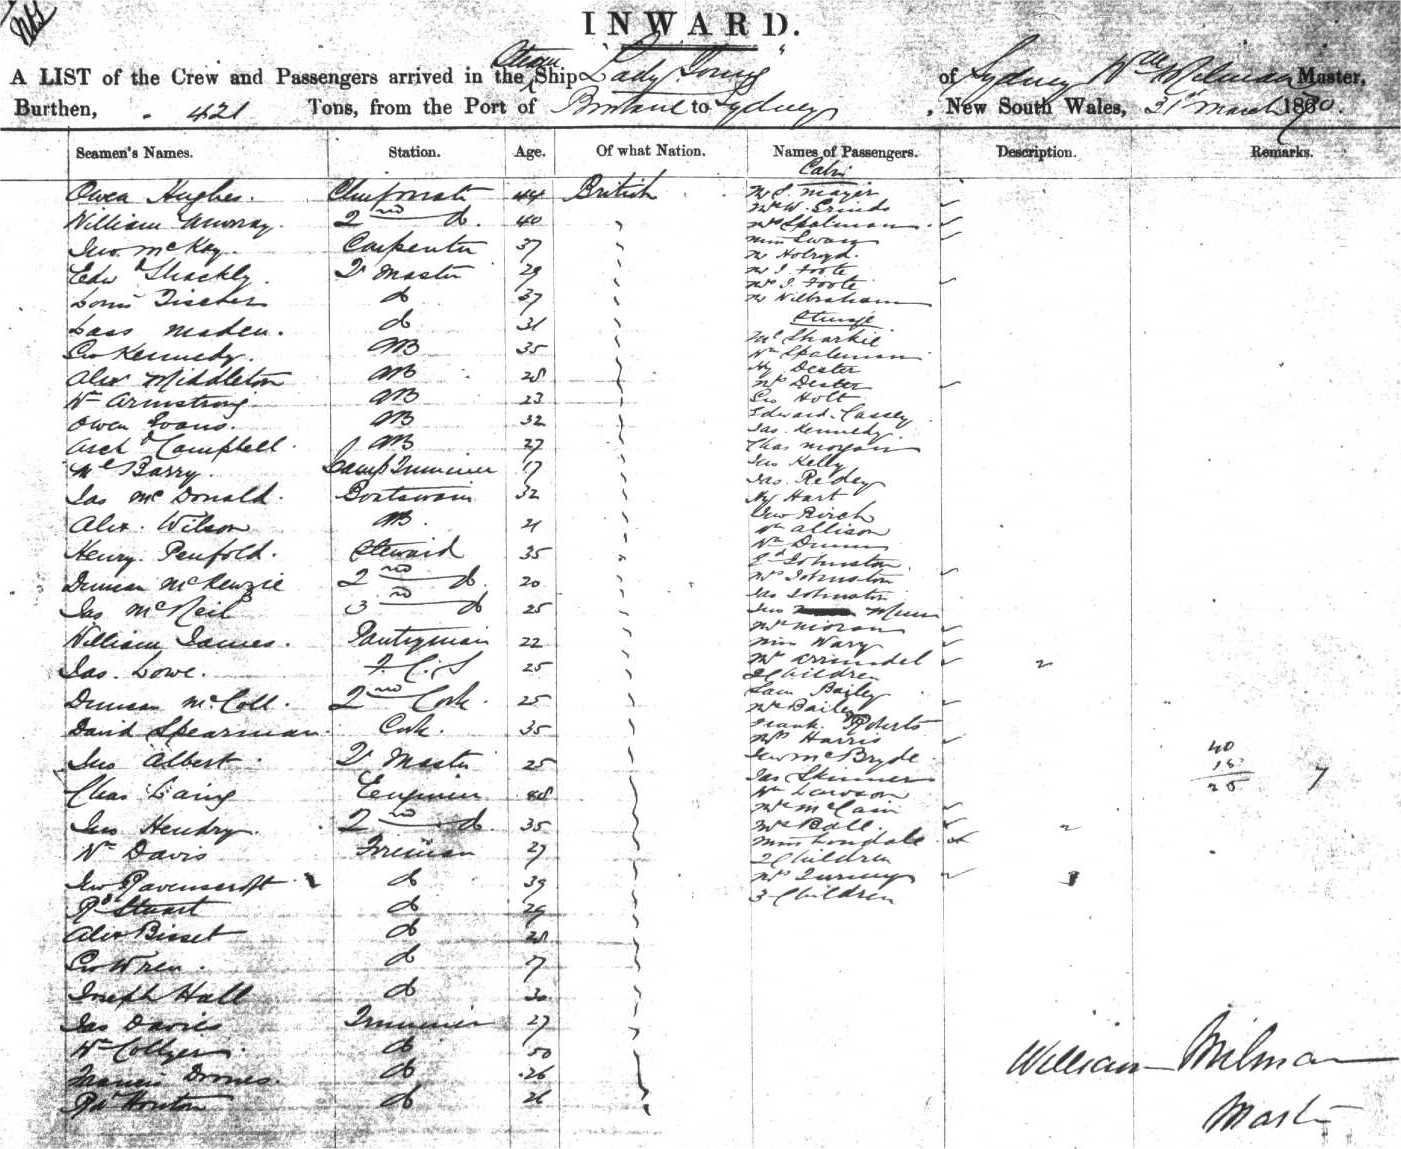 INWARD.
A LIST of the Crew and Passengers arrived in the Ship Lady Young of Sydney Wm Milman Master,
Burthen, 421 Tons, from the Port of Brisbane to Sydney, New South Wales, 31st March 1870
Seamen's Names. Station. Age. Of what Nation. Names of Passengers. Description. Remarks.
Cabin
Owen Hughes. Chief mate 44 British Mr S. Mayer
Mr W. Grinds
William Murray. 2nd do. 40 Mrs Spalman
Miss Swan
Jno. McKay. Carpenter 37 Mr Holroyd.
Edwd Shackly. Q Master 29 Mr J. Foote
Mrs J. Foote
Louis Fischer do 37 Mr Wilbraham
Lass Maden. do 31 Steerage
Geo Kennedy. AB 35 Mc Sharkie
Wm Spalman
Alex Middleton AB 28 Hy Dexter
Mrs Dexter
Wm Armstrong. AB 23 Geo Holt
Owen Evans. AB 32 Edward Cassey
Jas. Kennedy.
Archd Campbell. AB 27 Chas Morgan
Ml Barry. Lamp Trimmer 17 Jas Kelly
Jas. Redey
Jas McDonald. Boatswain 32 Hy Hart
Alex. Wilson AB. 21 Jno Birch
Wm Allison
Henry Penfold. Steward 35 Wm Dunn
Ed Johnston
Duncan McKenzie 2nd do. 20 Mrs Johnston
Jas Johnston
Jas McNeil 3rd do 25 Jno Munn
Mrs Moran
William James. Pantryman 22 Miss Wary
Jas. Lowe. F. C. S 25 Mrs Arrundel
2 Children
Duncan McColl. 2nd Cook. 25 Sam Bailey
Mrs Bailey
David Spearman. Cook. 35 Frank Roberts
Mrs Harris
Jno Albert. Q Master 25 Jno McBryde 40
Jas Skinner 15
Chas Laing Engineer 48 Wm Lawson 25 7
Mrs McCain
Jno Hendry. 2nd do 35 Mrs Ball.
Miss Londale
Wm Davis Fireman 27 2 Children
Jno Ravenscroft do 39 Mrs Turney
3 Children
Rd Stuart do 29
Alex Bisset do 28
Geo Wren. do
Joseph Hall do 30
Jas Davies Trimmer 27
Wm Collyer. do 50
Francis do 26
Rd Houton do 26
William Milman
Master